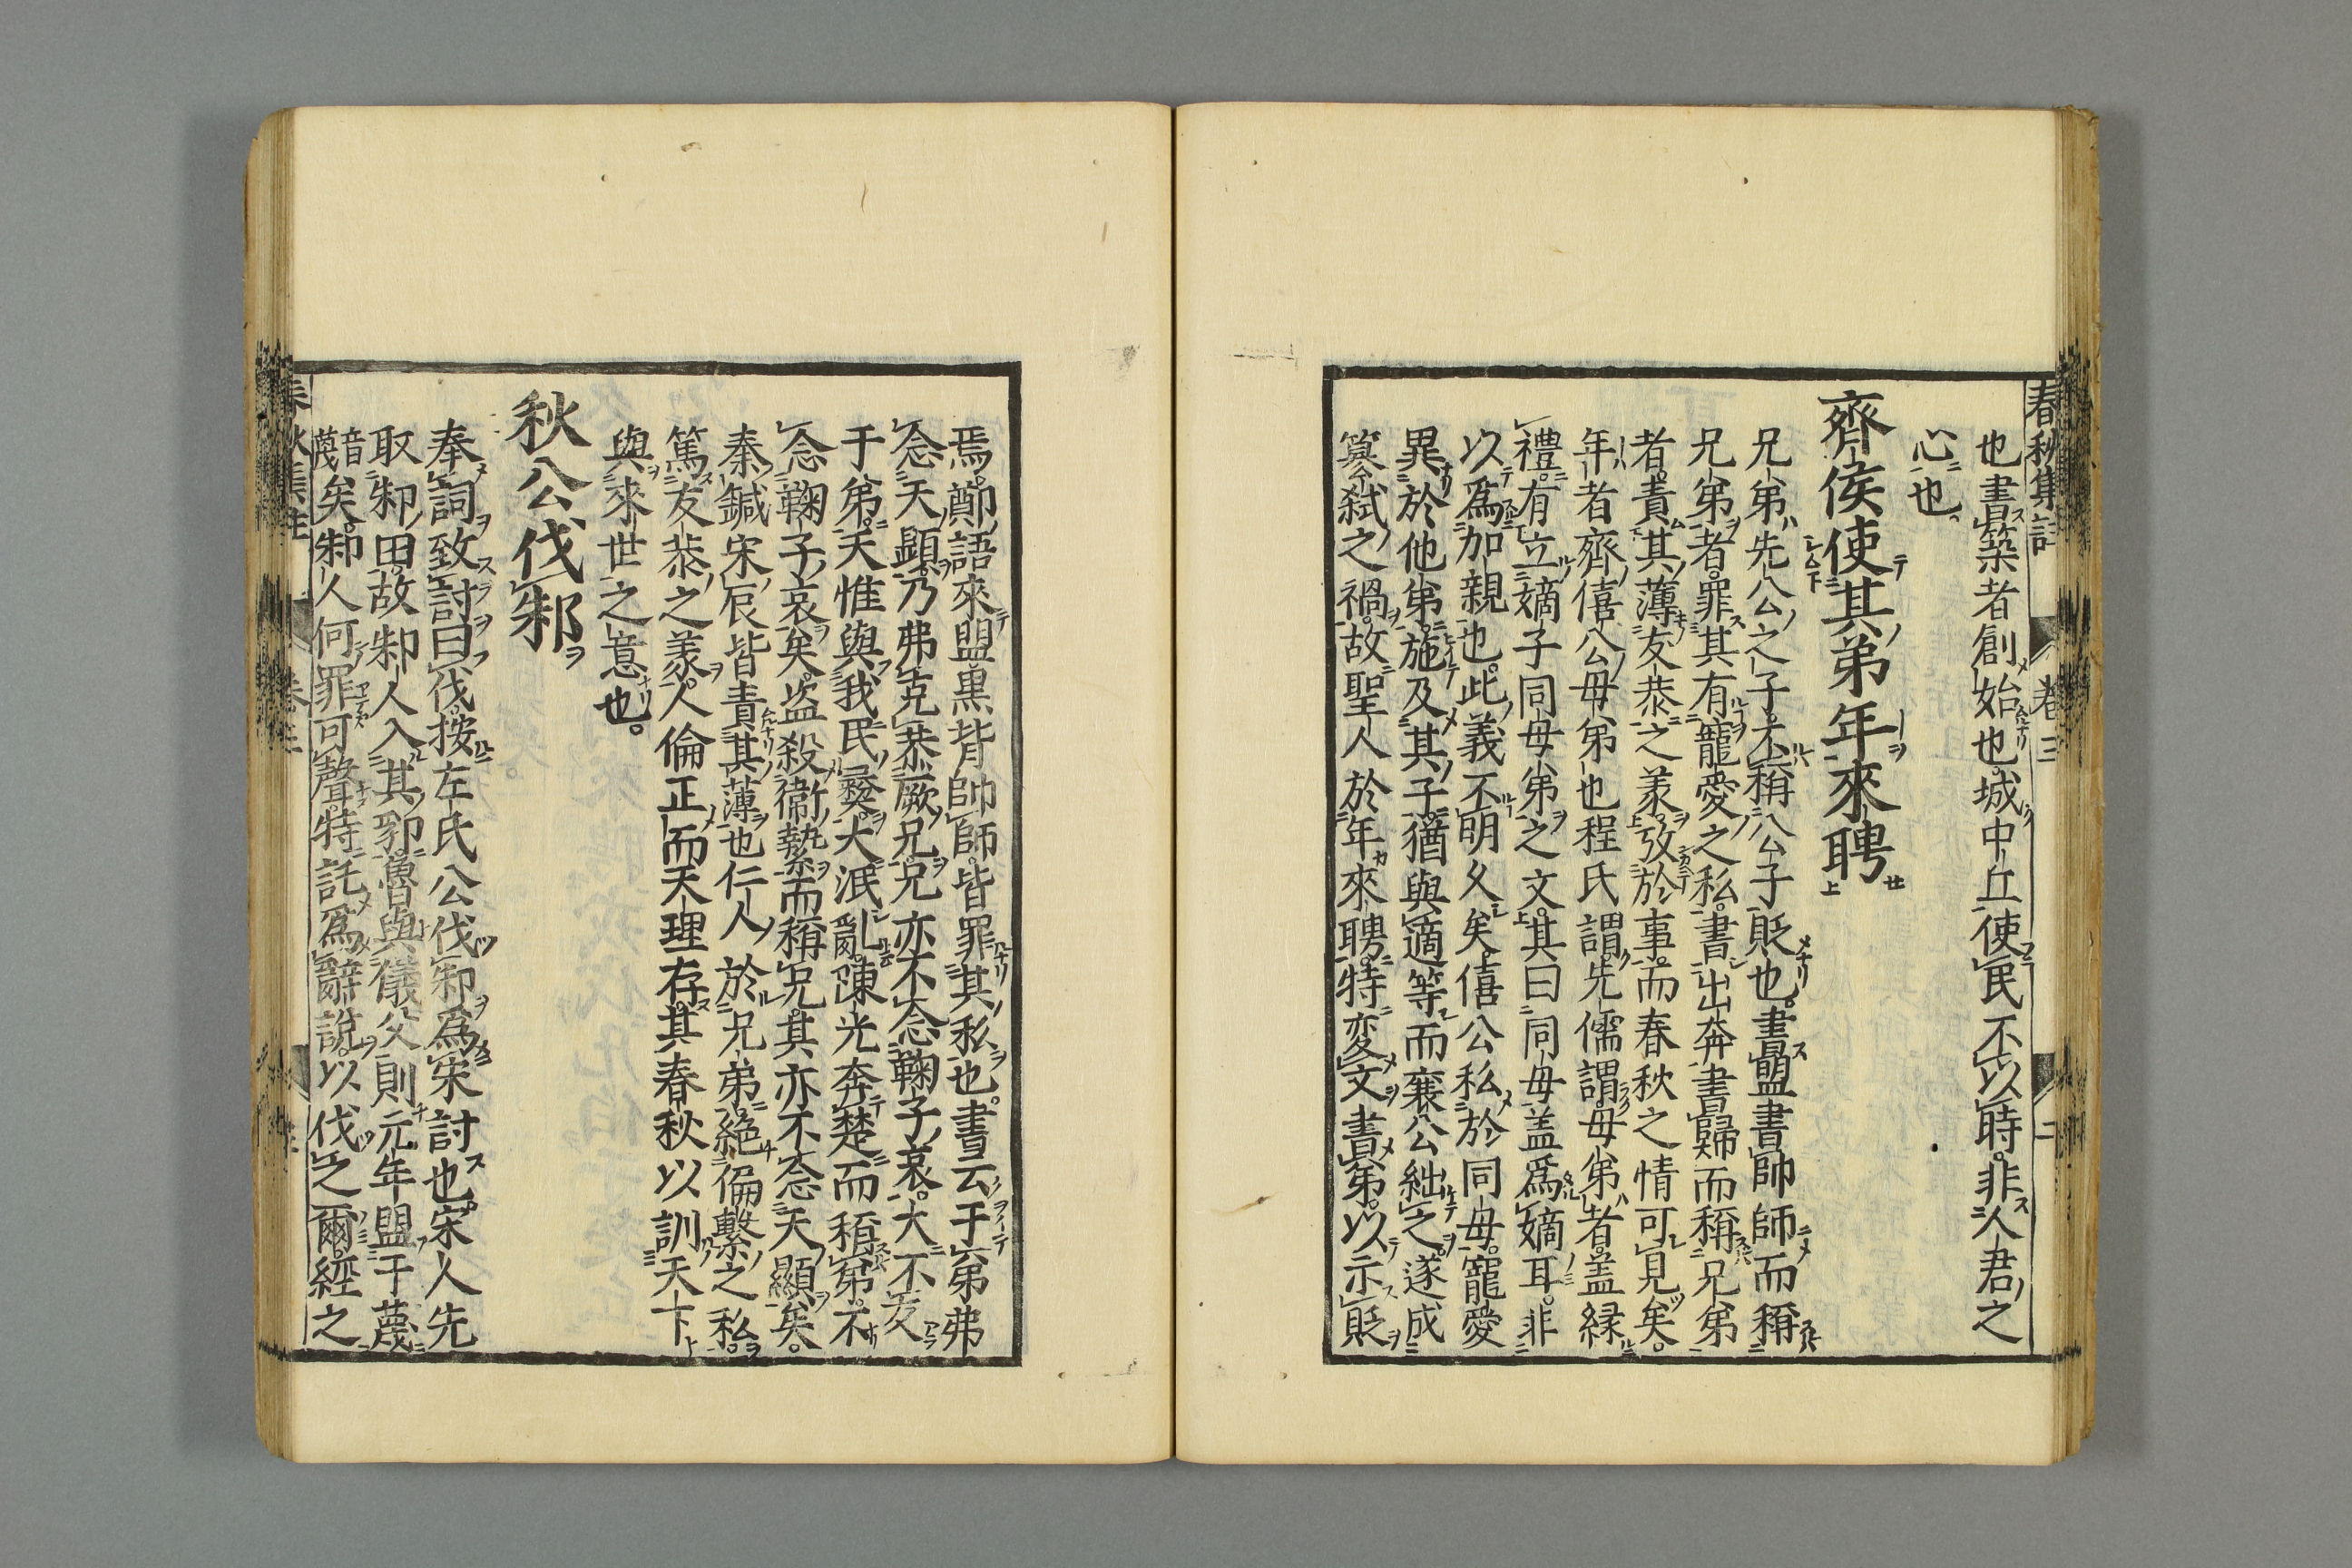 春秋集註 卷三 二
也書築者創始也城中丘使民不以時非人君之
心也
齊侯使其弟年來聘
兄弟先公之子不稱公子貶也書盟書帥師而稱
兄弟者罪其有寵愛之私書出奔書歸而稱兄弟
者責其薄友恭之義攷於事而春秋之情可見矣
年者齊僖公母弟也程氏謂先儒謂母弟者盖縁
禮有立嫡子同母弟之文其曰同母盖爲嫡耳非
以爲加親也此義不明久矣僖公私於同母寵愛
異於他弟施及其子猶與適等而襄公絀之遂成
簒弑之禍故聖人於年來聘特変文書弟以示貶
焉鄭語來盟黒背帥師皆罪其私也書云于弟弗
念天顯乃弗克恭厥兄兄亦不念鞠子哀大不友
于弟天惟與我民彛大泯亂陳光奔楚而稱弟不
念鞠子哀矣盗殺衞縶而稱兄其亦不念天顯矣
秦鍼宋辰皆責其薄也仁人於兄弟絶偏繫之私
篤友恭之義人倫正而天理存其春秋以訓天下
與來世之意也
秋公伐邾
奉詞致討曰伐按左氏公伐邾爲宋討也宋人先
取邾田故邾人入其郛魯與儀父則元年盟于蔑
音蔑矣邾人何罪可聲特託爲辭說以伐之爾經之
春秋集註 卷三